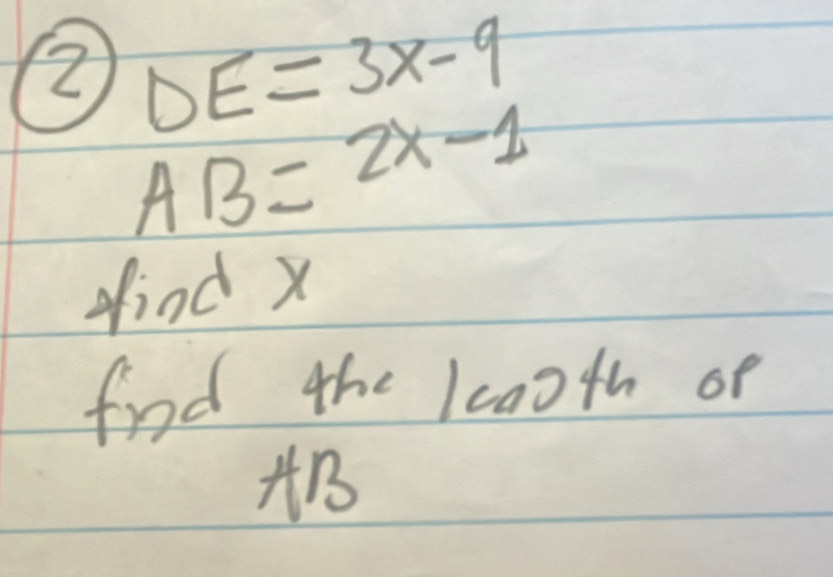 ② DE = 3x - 9
AB = 2x - 1
find x
find the length of
AB